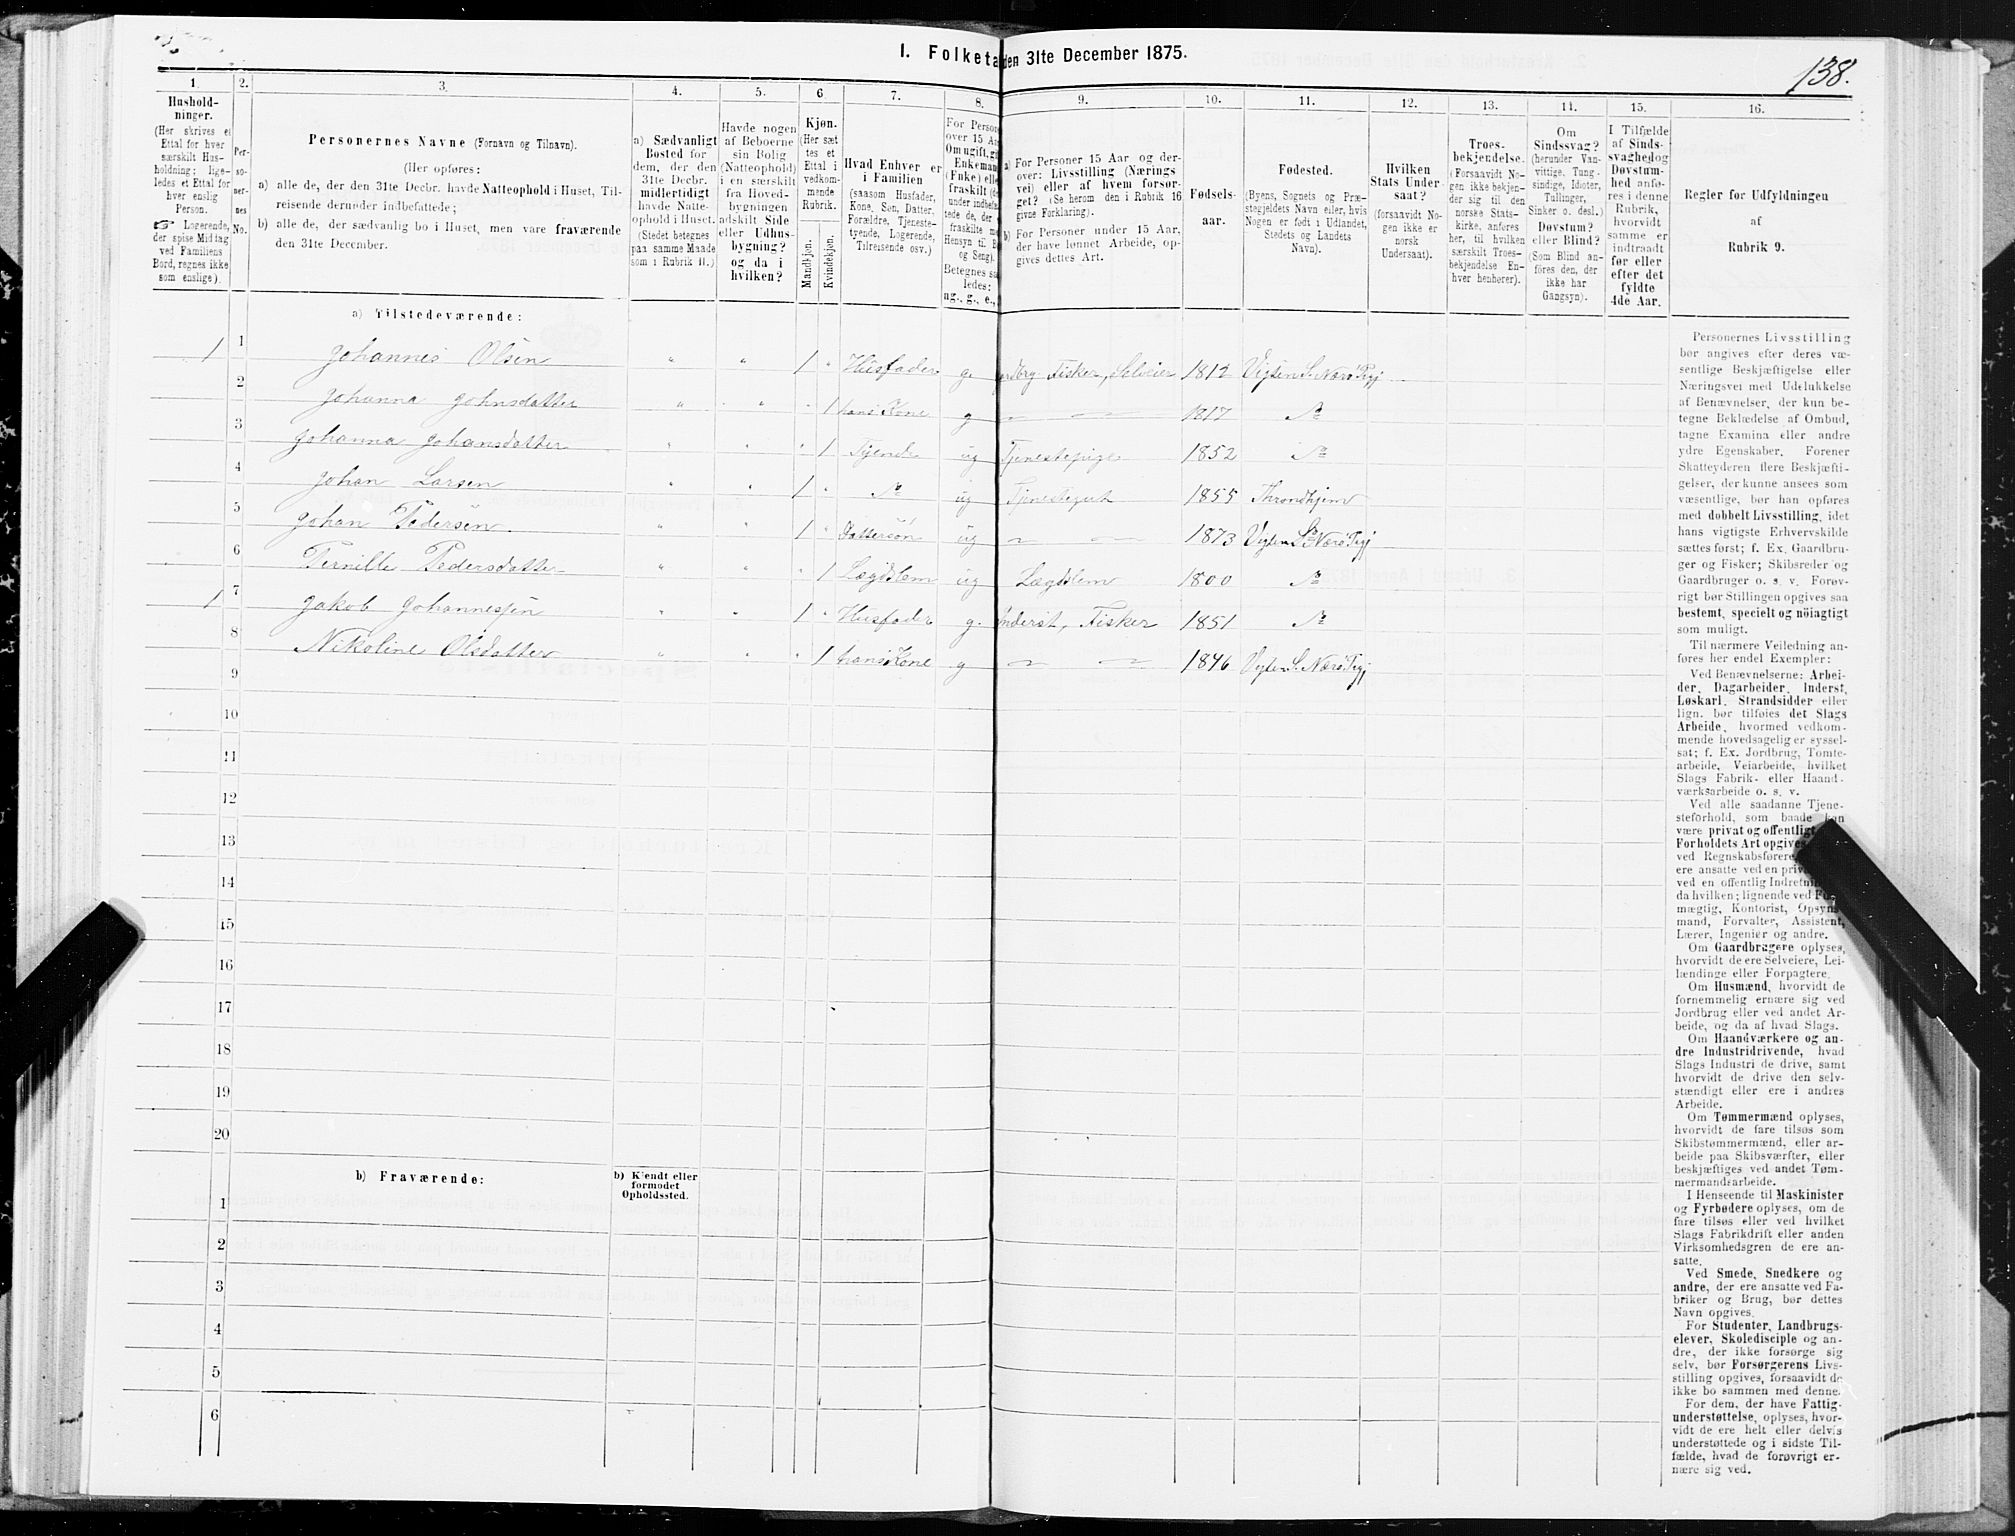 I. Folketa den 31te December 1875.
138.
1. 2. 3. 4. 5. 6 7. 8. 9. 10. 11. 12. 13. 14. 15. 16.
Hushold-
ninger.
(Her skrives et
Ettal for hver
særskilt Hus-
holdning; lige-
ledes et Ettal for
hver enslig
Person.
Logerende,
der spise Middag
ved Familiens
Bord, regnes ikke
som enslige).
Per-
so-
ner-
nes
No.
Personernes Navne (Fornavn og Tilnavn).
(Her opføres:
a) alle de, der den 31te Decbr. havde Natteophold i Huset, Til-
reisende derunder indbefattede;
b) alle de, der sædvanlig bo i Huset, men vare fraværende
den 31te December.
a) Sædvanligt
Bosted for
dem, der den
31te Decbr.
midlertidigt
havde Natte-
ophold i Huset.
(Stedet betegnes
paa samme Maade
som i Rubrik 11.)
Havde nogen
af Beboerne
sin Bolig
(Natteophold)
i en særskilt
fra Hoved-
bygningen
adskilt Side
eller Udhus-
bygning?
og da i
hvilken?
Kjøn.
(Her sæt
tes et
Ettal i
vedkom-
mende
Rubrik.
Mandkjøn.
Kvindekjøn.
Hvad Enhver er
i Familien
(saasom Husfader,
Kone, Søn, Datter,
Forældre, Tjeneste-
tyende, Logerende,
Tilreisende osv.)
For Person
over 15 Aa
Om ugift, gi
Enkeman
(Enke) elle
fraskilt (de
under indbefa
tede de, der
fraskilte me
Hensyn til B
og Seng).
Betegnes sa
ledes:
ug., g., e.,
a) For Personer 15 Aar og der-
over: Livsstilling (Nærings
vei) eller af hvem forsør-
get? (Se herom den i Rubrik 16
givne Forklaring).
b) For Personer under 15 Aar,
der have lønnet Arbeide, op-
gives dettes Art.
Fødsels-
aar.
Fødested.
(Byens, Sognets og Præ-
stegjeldets Navn eller, hvis
Nogen er født i Udlandet,
Stedets og Landets
Navn).
Hvilken
Stats Under-
saat?
(forsaavidt No-
gen ikke er
norsk
Undersaat).
Troes-
bekjendelse.
(Forsaavidt No-
gen ikke bekjen-
der sig til den
norske Stats-
kirke, anføres
her, til hvilken
særskilt Troes-
bekjendelse En-
hver henhører).
Om
Sindssvag?
(herunder Van-
vittige, Tung-
sindige, Idioter,
Tullinger,
Sinker o. desl.)
Døvstum?
eller Blind?
(Som Blind an-
føres den, der
ikke har
Gangsyn).
I Tilfælde
af Sinds-
svaghed og
Døvstum-
hed anfø-
res i denne
Rubrik,
hvorvidt
samme er
indtraadt
før eller
efter det
fyldte
4de Aar.
Regler for Udfyldningen
af
Rubrik 9.
a) Tilstedeværende:
1 1 Johannes Olsen " " 1 " Husfader g. Fisker, Selveier 1812 Vigten S. Nærø Pgj
2 Johanna Johnsdatter " " " 1 hans Kone g — — 1817 Do
3 Johanna Johansdatter " " " 1 Tyende ug Tjenestepige 1852 Do
4 Johan Larsen " " 1 " Do ug Tjenestegut 1855 Throndhjem
5 Johan Pedersen " " 1 " Dattersøn ug — — 1873 Vigten S. Nærø Pgj
6 Pernille Pedersdatter " " " 1 Lægdslem ug Lægdslem 1800 Do
1 7 Jakob Johannessen " " 1 " Husfader g. Inderst, Fisker 1851 Do
8 Nikoline Olsdatter " " " 1 hans Kone g — — 1846 Vigten S. Nærø Pgj
9
10
11
12
13
14
15
16
17
18
19
20
b) Fraværende:
b) Kjendt eller
formodet
Opholdssted.
1
2
3
4
5
6
Personernes Livsstilling
bør angives efter deres væ-
sentlige Beskjæftigelse eller
Næringsvei med Udelukkelse
af Benævnelser, der kun be-
tegne Beklædelse af Ombud,
tagne Examina eller andre
ydre Egenskaber. Forener
Skatteyderen flere Beskjæfti-
gelser, der kunne ansees som
væsentlige, bør han opføres
med dobbelt Livsstilling, idet
hans vigtigste Erhvervskilde
sættes først; f. Ex. Gaardbru-
ger og Fisker; Skibsreder og
Gaardbruger o. s. v. Forøv-
rigt bør Stillingen opgives saa
bestemt, specielt og nöiagtigt
som muligt.
Til nærmere Veiledning an-
føres her endel Exempler:
Ved Benævnelserne: Arbei-
der, Dagarbeider, Inderst,
Løskarl, Strandsidder eller
lign. bør tilføies det Slags
Arbeide, hvormed vedkom-
mende hovedsagelig er syssel-
sat; f. Ex. Jordbrug, Tomte-
arbeide, Veiarbeide, hvilket
Slags Fabrik- eller Haand-
værksarbeide o. s. v.
Ved alle saadanne Tjene-
steforhold, som baade kan
være privat og offentligt
Forholdets Art opgives
ved Regnskabsførere,
ere ansatte ved en priv
ved en offentlig Indretni
da hvilken; lignende ved Fu
mægtig, Kontorist, Opsyns
mand, Forvalter, Assistent,
Lærer, Ingeniør og andre.
Om Gaardbrugere oplyses,
hvorvidt de ere Selveiere, Lei-
lændinge eller Forpagtere.
Om Husmænd, hvorvidt de
fornemmelig ernære sig ved
Jordbrug eller ved andet Ar-
beide, og da af hvad Slags.
Om Haandværkere og an-
dre Industridrivende, hvad
Slags Industri de drive, samt
hvorvidt de drive den selv-
stændigt eller ere i andres
Arbeide.
Om Tømmermænd oplyses,
hvorvidt de fare tilsøs som
Skibstømmermænd, eller ar-
beide paa Skibsværfter, eller
beskjæftiges ved andet Tøm-
mermandsarbeide.
I Henseende til Maskinister
og Fyrbødere oplyses, om de
fare tilsøs eller ved hvilket
Slags Fabrikdrift eller anden
Virksomhedsgren de ere an-
satte.
Ved Smede, Snedkere og
andre, der ere ansatte ved Fa-
briker og Brug, bør dettes
Navn opgives.
For Studenter, Landbrugs-
elever, Skoledisciple og an-
dre, der ikke forsørge sig
selv, bør Forsørgerens Livs-
stilling opgives, forsaavidt de
ikke bo sammen med denne.
For dem, der have Fattig-
understøttelse, oplyses, hvor-
vidt de ere helt eller delvis
understøttede og i sidste Til-
fælde, hvad de forøvrigt er-
nære sig ved.